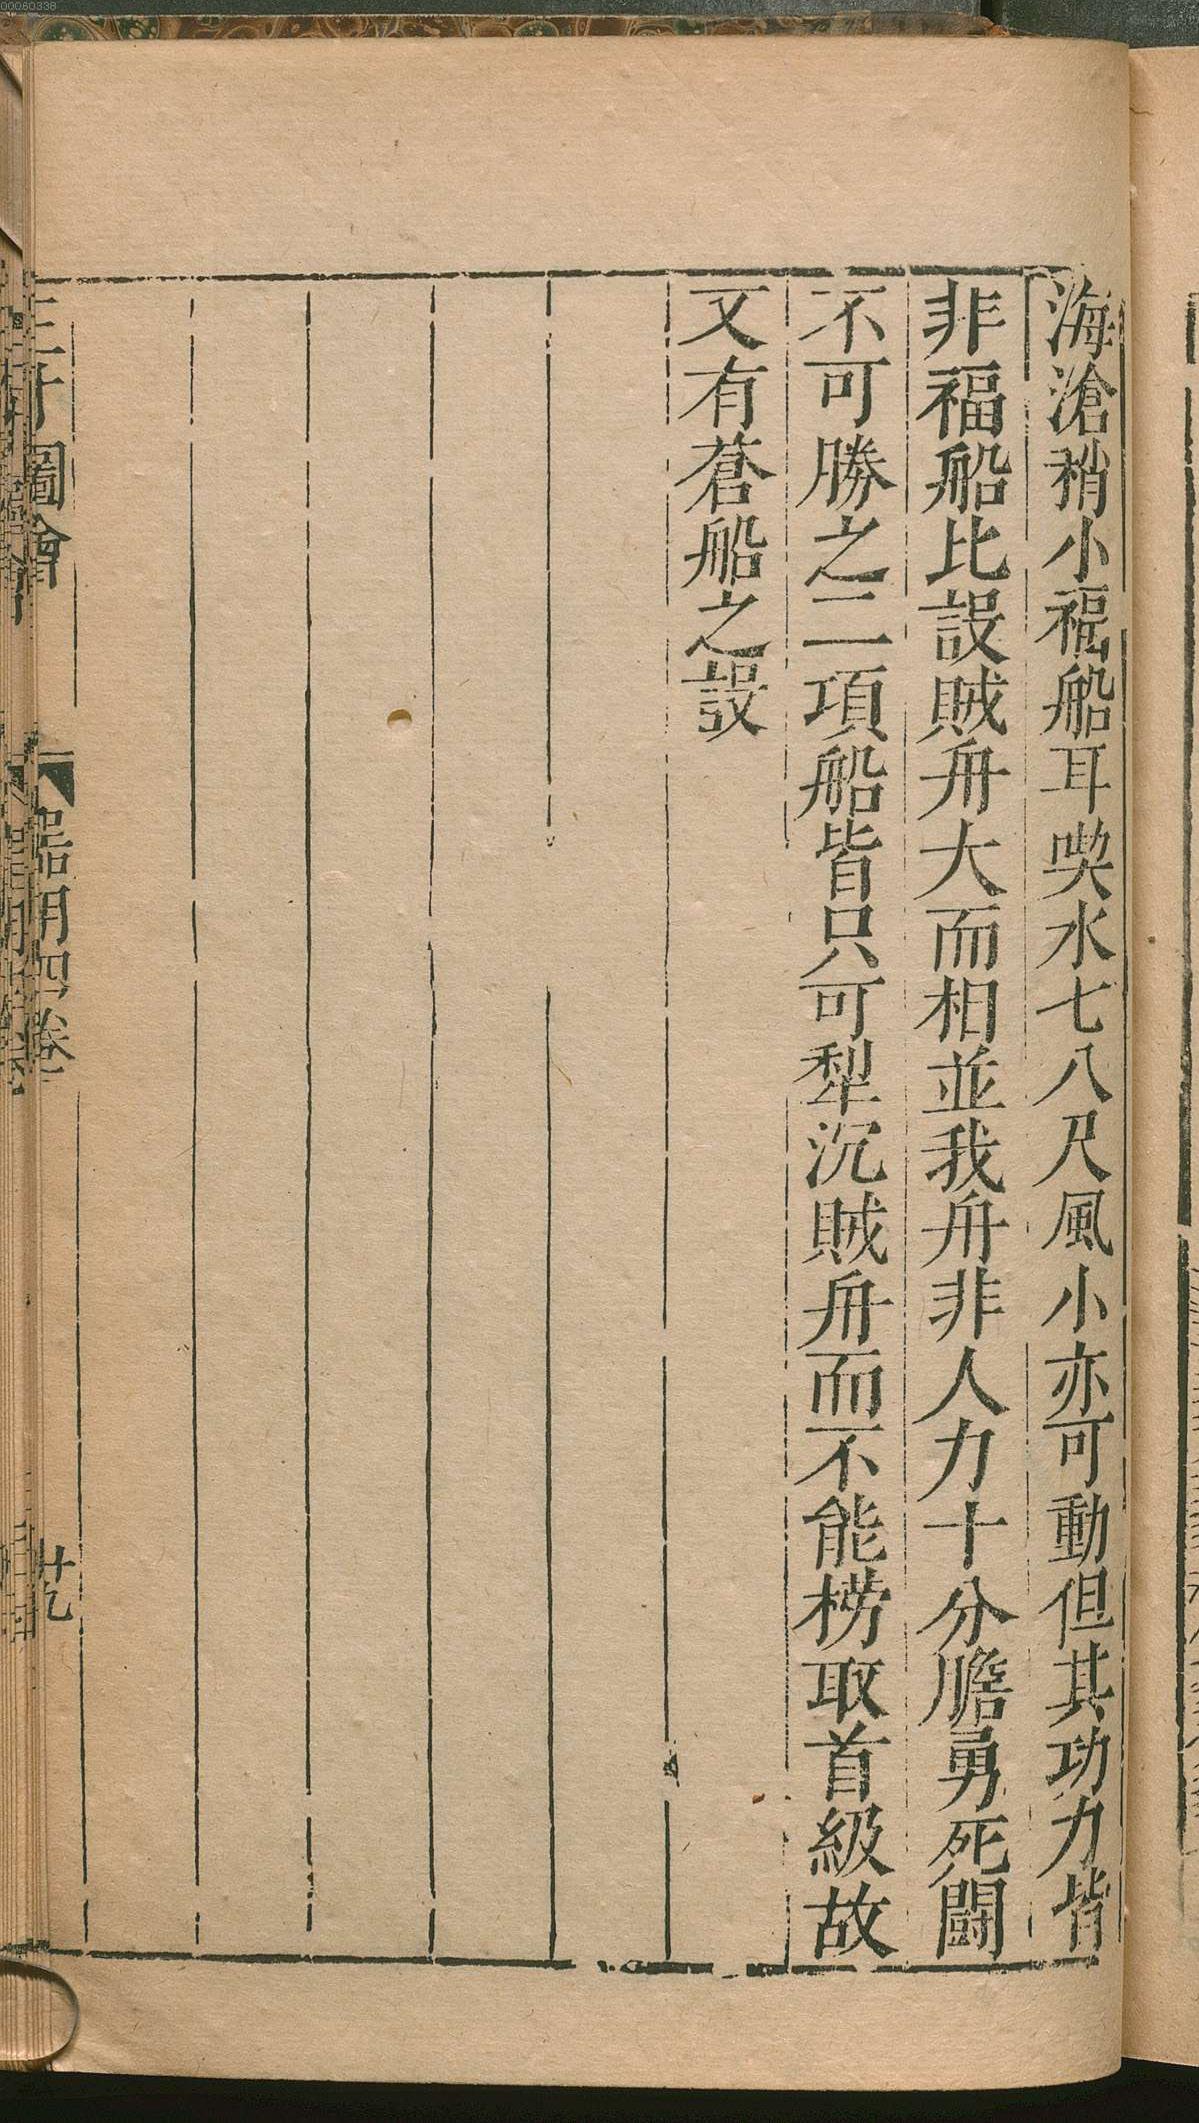 海滄稍小福船耳喫水七八尺風小亦可動但其功力皆
非福船比設賊舟大而相並我舟非人力十分膽勇死鬪
不可勝之二項船皆只可犁沉賊舟而不能撈取首級故
又有蒼船之設
三才圖會
器用四卷
廿九
00060338